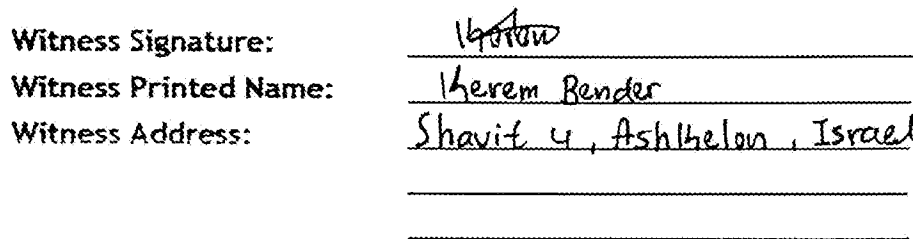 Witness Signature:
Witness Printed Name: Kerem Bender
Witness Address: Shavit 4, Ashkelon, Israel